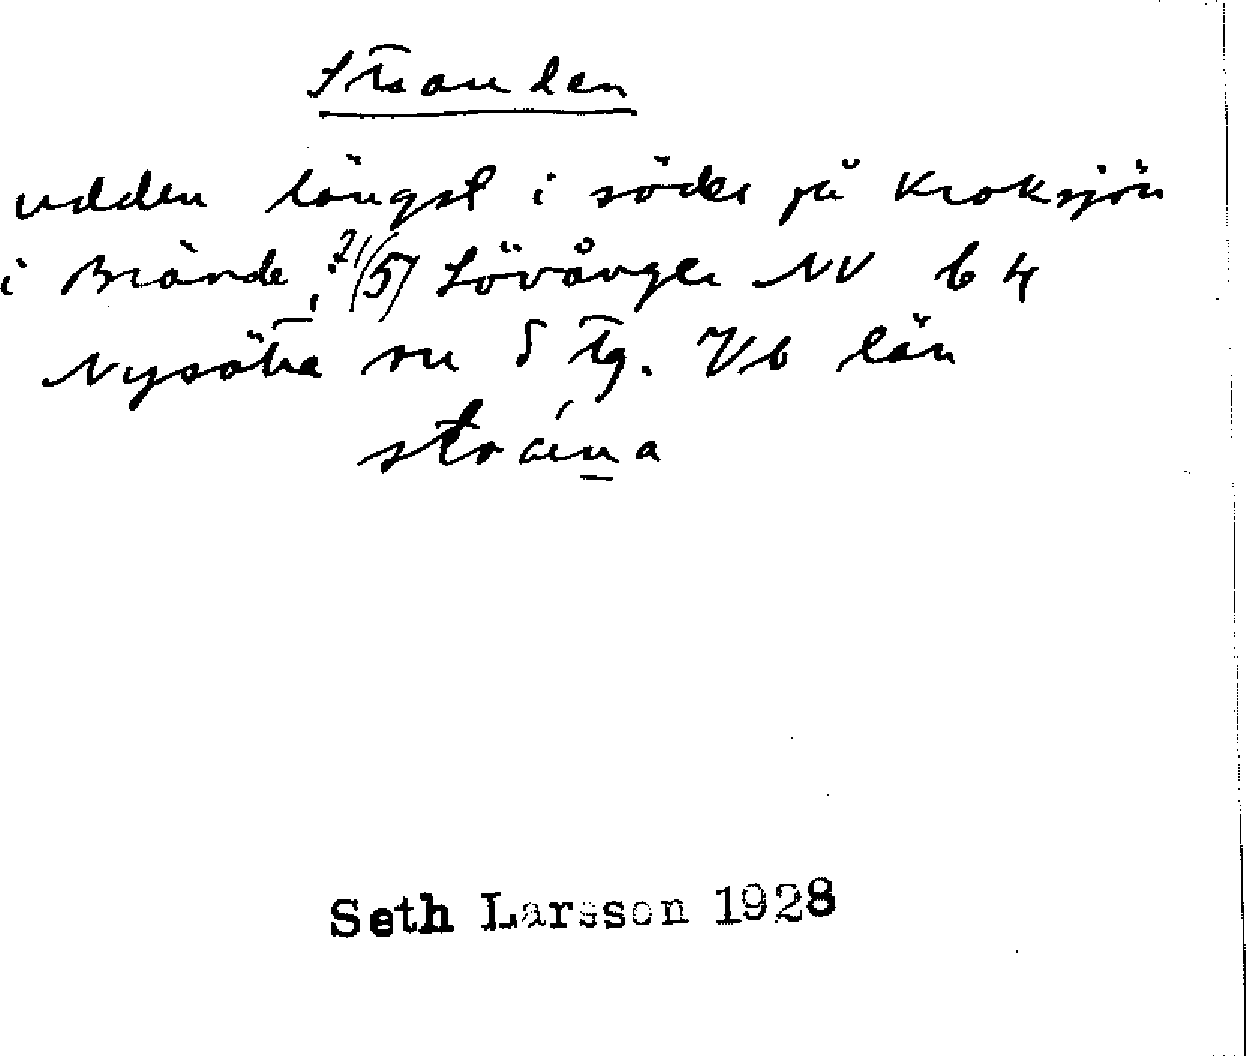 Stranden
udden längst i söder på Kroksjön
i Brände, 21/(5) Lövånger NV b 4
Nysätra sn S tg. Vb län
strána
Seth Larsson 1928